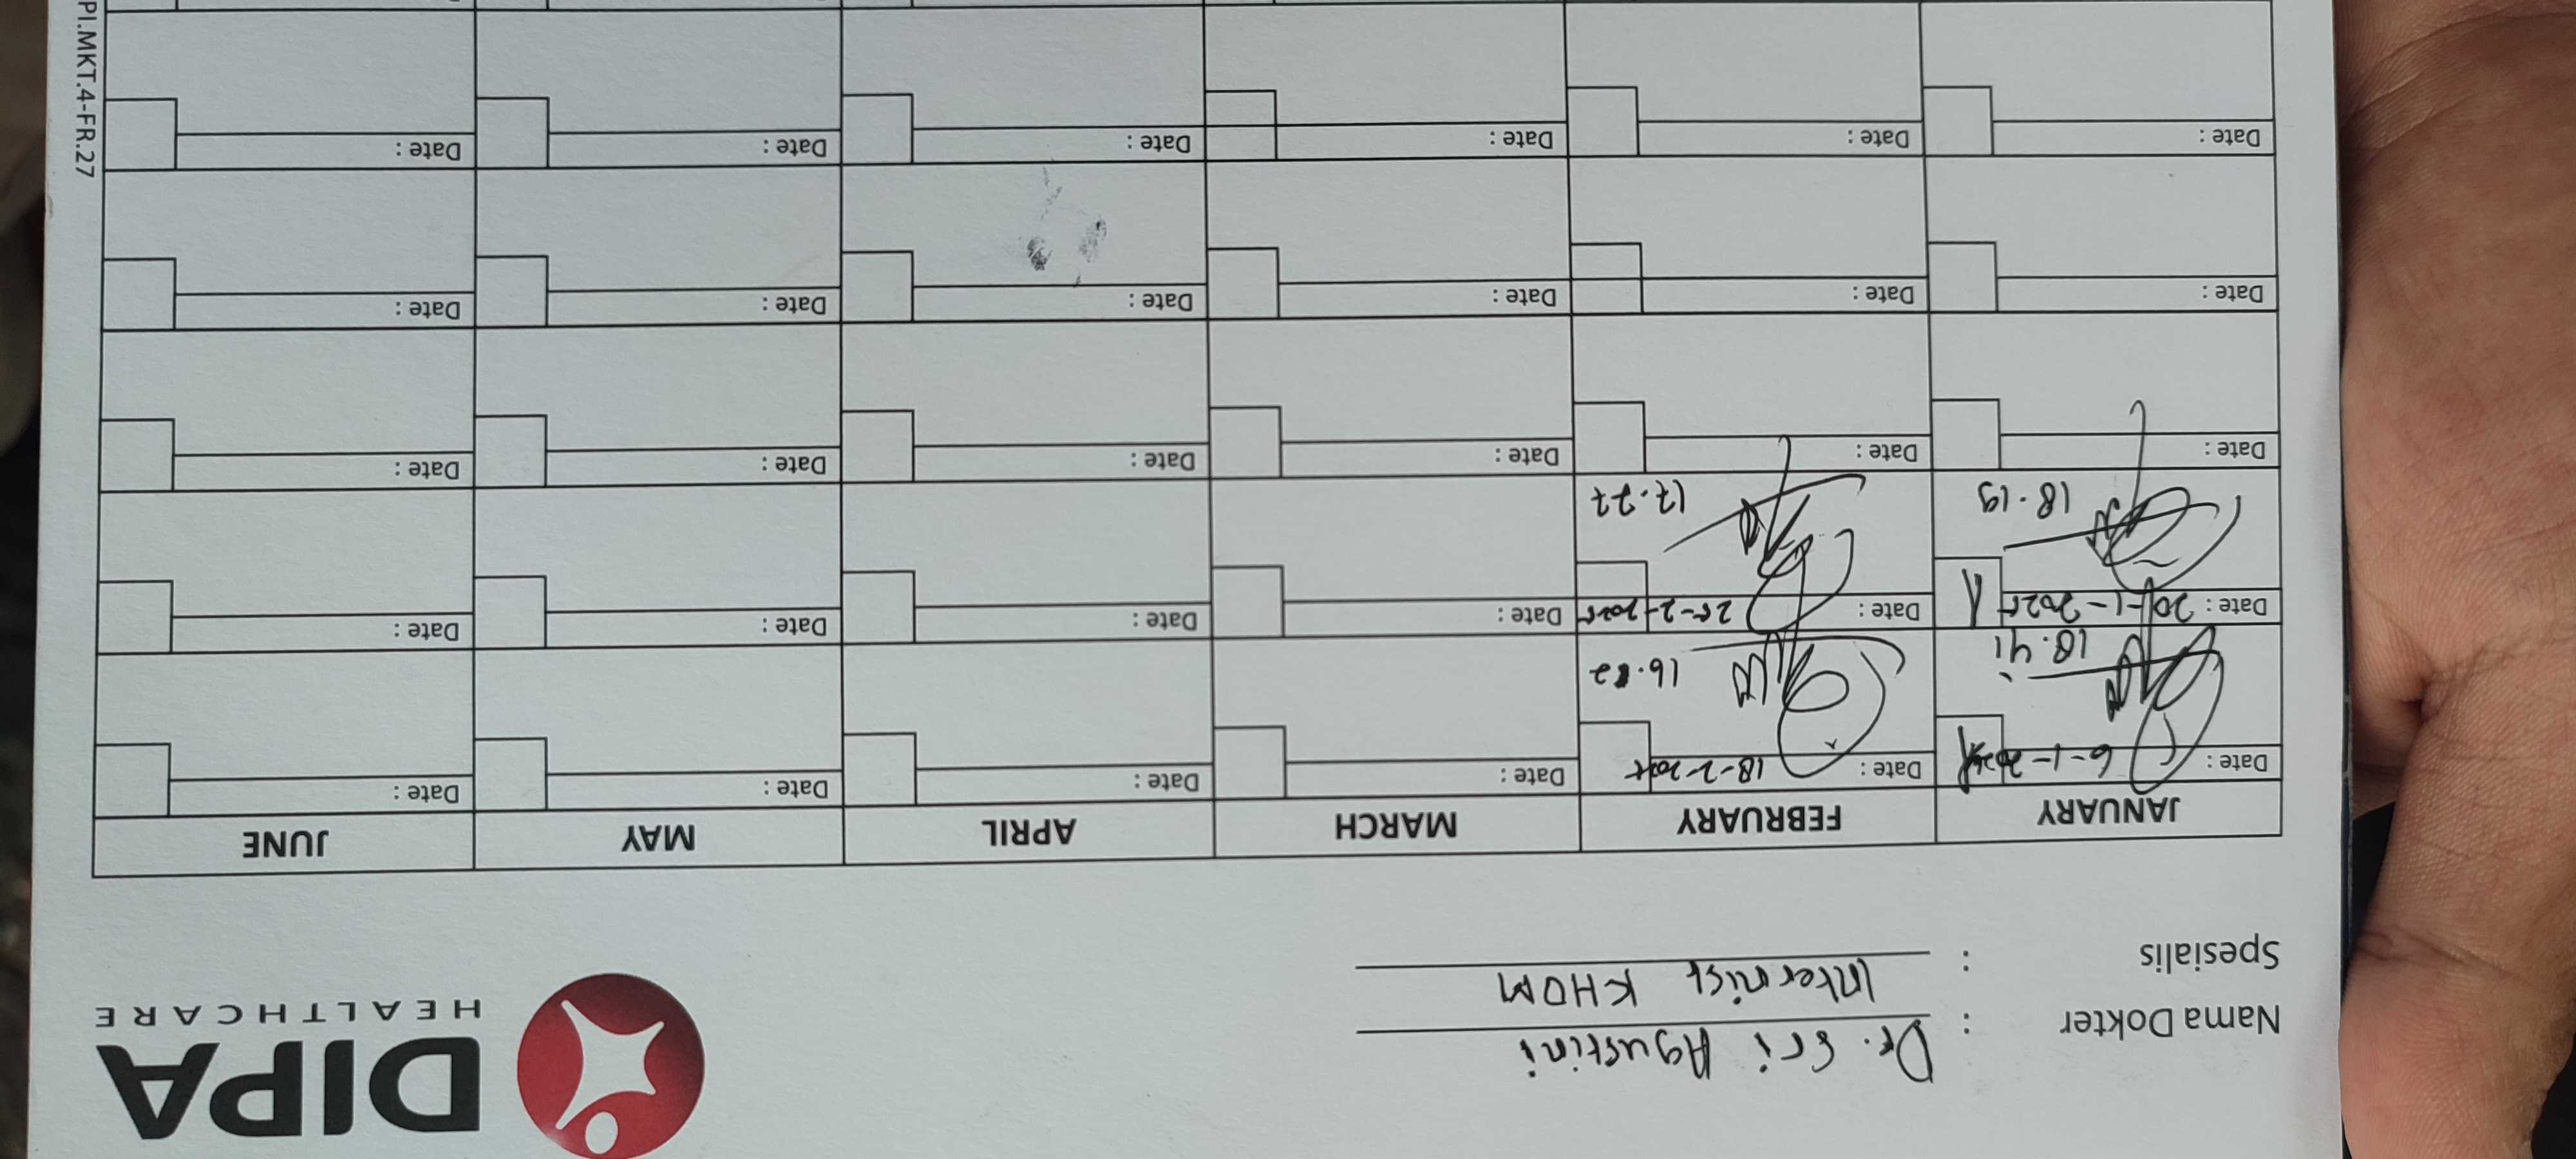 DIPA
HEALTHCARE
Nama Dokter : Dr. Sri Agustini
Spesialis : Internist KHOM
JANUARY FEBRUARY MARCH APRIL MAY JUNE
Date : 6-1-2025 Date : 18-2-2025 Date : Date : Date : Date :
18.41 16.
Date : 20-1-2025 Date : 25-2-2025 Date : Date : Date : Date :
18.19 17.27
Date : Date : Date : Date : Date : Date :
Date : Date : Date : Date : Date : Date :
Date : Date : Date : Date : Date : Date :
PI.MKT.4-FR.27